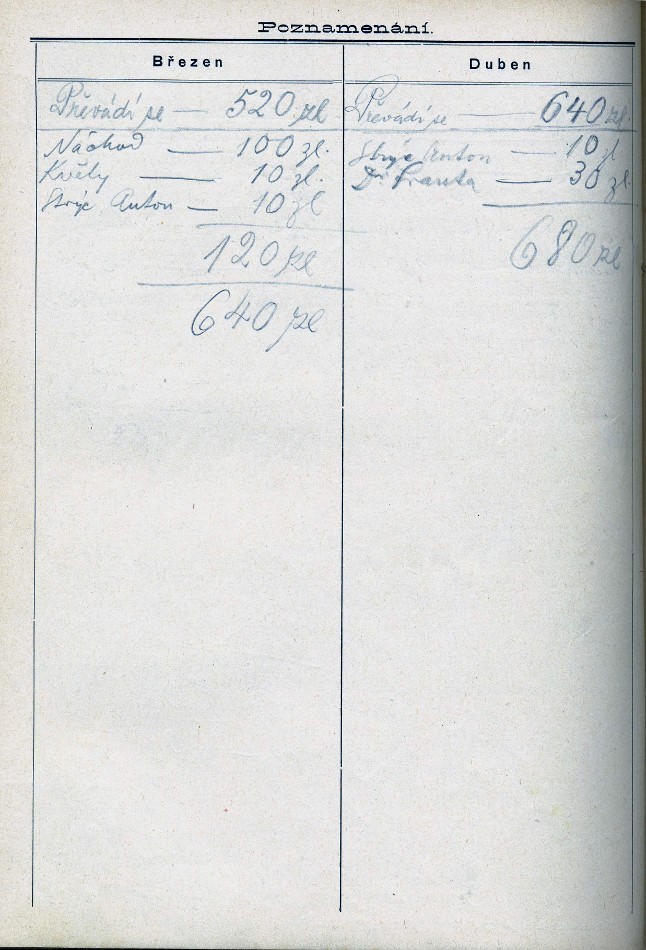 Poznamenání.
Březen
Převádí se — 520 zl
Náchod — 100 zl.
Květy — 10 zl.
Strýc Anton — 10 zl
120 zl
640 zl
Duben
Převádí se — 640 zl.
Strýc Anton — 10 zl
Dr Franta — 30 zl.
680 zl